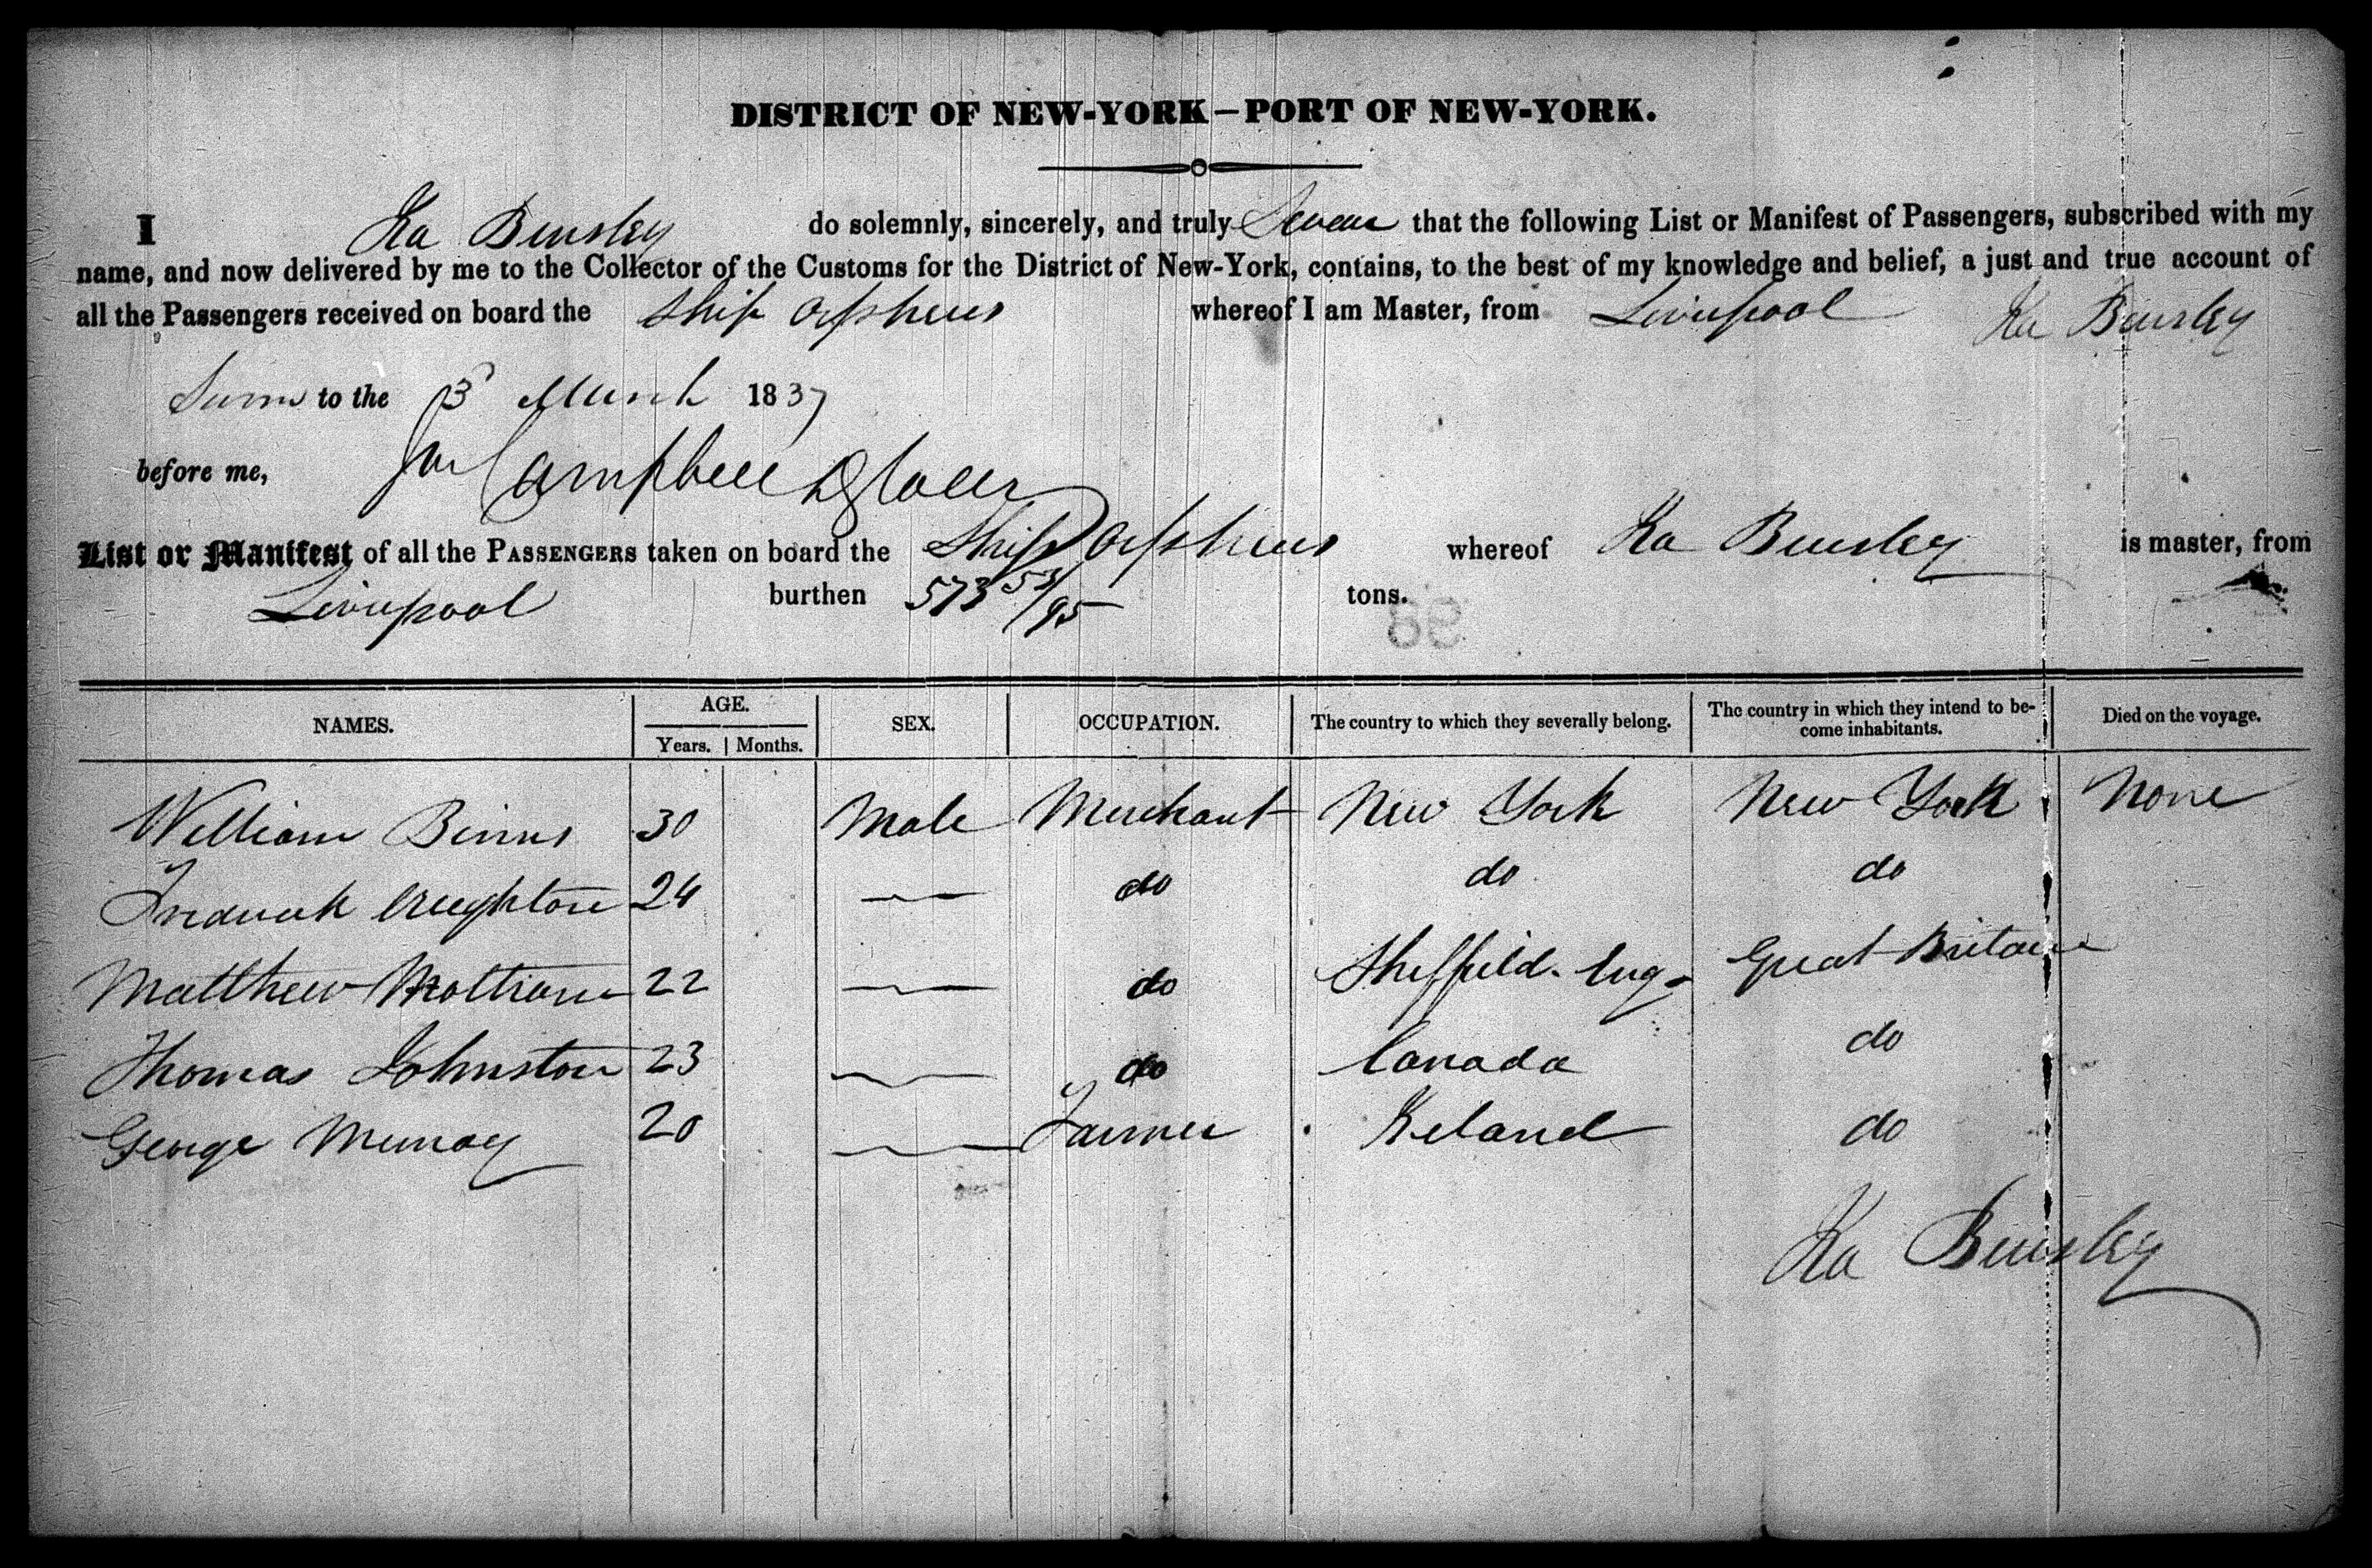 DISTRICT OF NEW-YORK – PORT OF NEW-YORK.
I Ira Bursley do solemnly, sincerely, and truly Swear that the following List or Manifest of Passengers, subscribed with my
name, and now delivered by me to the Collector of the Customs for the District of New-York, contains, to the best of my knowledge and belief, a just and true account of
all the Passengers received on board the Ship Orpheus whereof I am Master, from Liverpool Ira Bursley
Sworn to the 3 March 1837
before me, Campbell
List or Manifest of all the PASSENGERS taken on board the Ship Orpheus whereof Ira Bursley is master, from
Liverpool burthen 573 53/95 tons.
98
NAMES. AGE. Years. Months. SEX. OCCUPATION. The country to which they severally belong. The country in which they intend to become inhabitants. Died on the voyage.
William Binns 30 Male Merchant New York New York None
Fredrick Creighton 24 — do do do
Matthew 22 — do Sheffield. Eng Great Britain
Thomas Johnston 23 — do Canada do
George Murray 20 — Farmer Ireland do
Ira Bursley